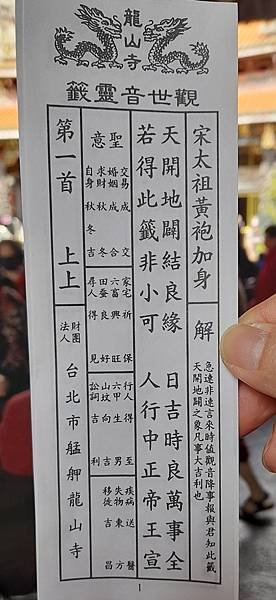 龍山寺
觀世音靈籤
宋太祖黃袍加身
解
急速非速言來時值觀音降事報與君知此籤
天開地闢之象凡事大吉利也
天開地闢結良緣　日吉時良萬事全
若得此籤非小可　人行中正帝王宣
聖意
交易成　交
婚姻成　合
求財秋　冬
自身秋冬吉
家宅祈　保
六畜興　旺
田蚕良　好
尋人得　見
行人得　至
六甲生　男
山坟向　吉
訟詞吉　利
疾病送　醫
失物東　方
移徙吉　昌
第一首　上上
財團法人台北市艋舺龍山寺
1